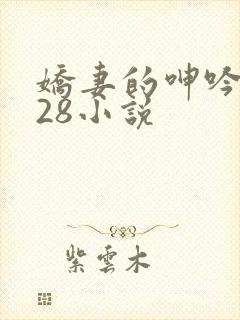 嬌妻的呻吟
28小說
紫雲木